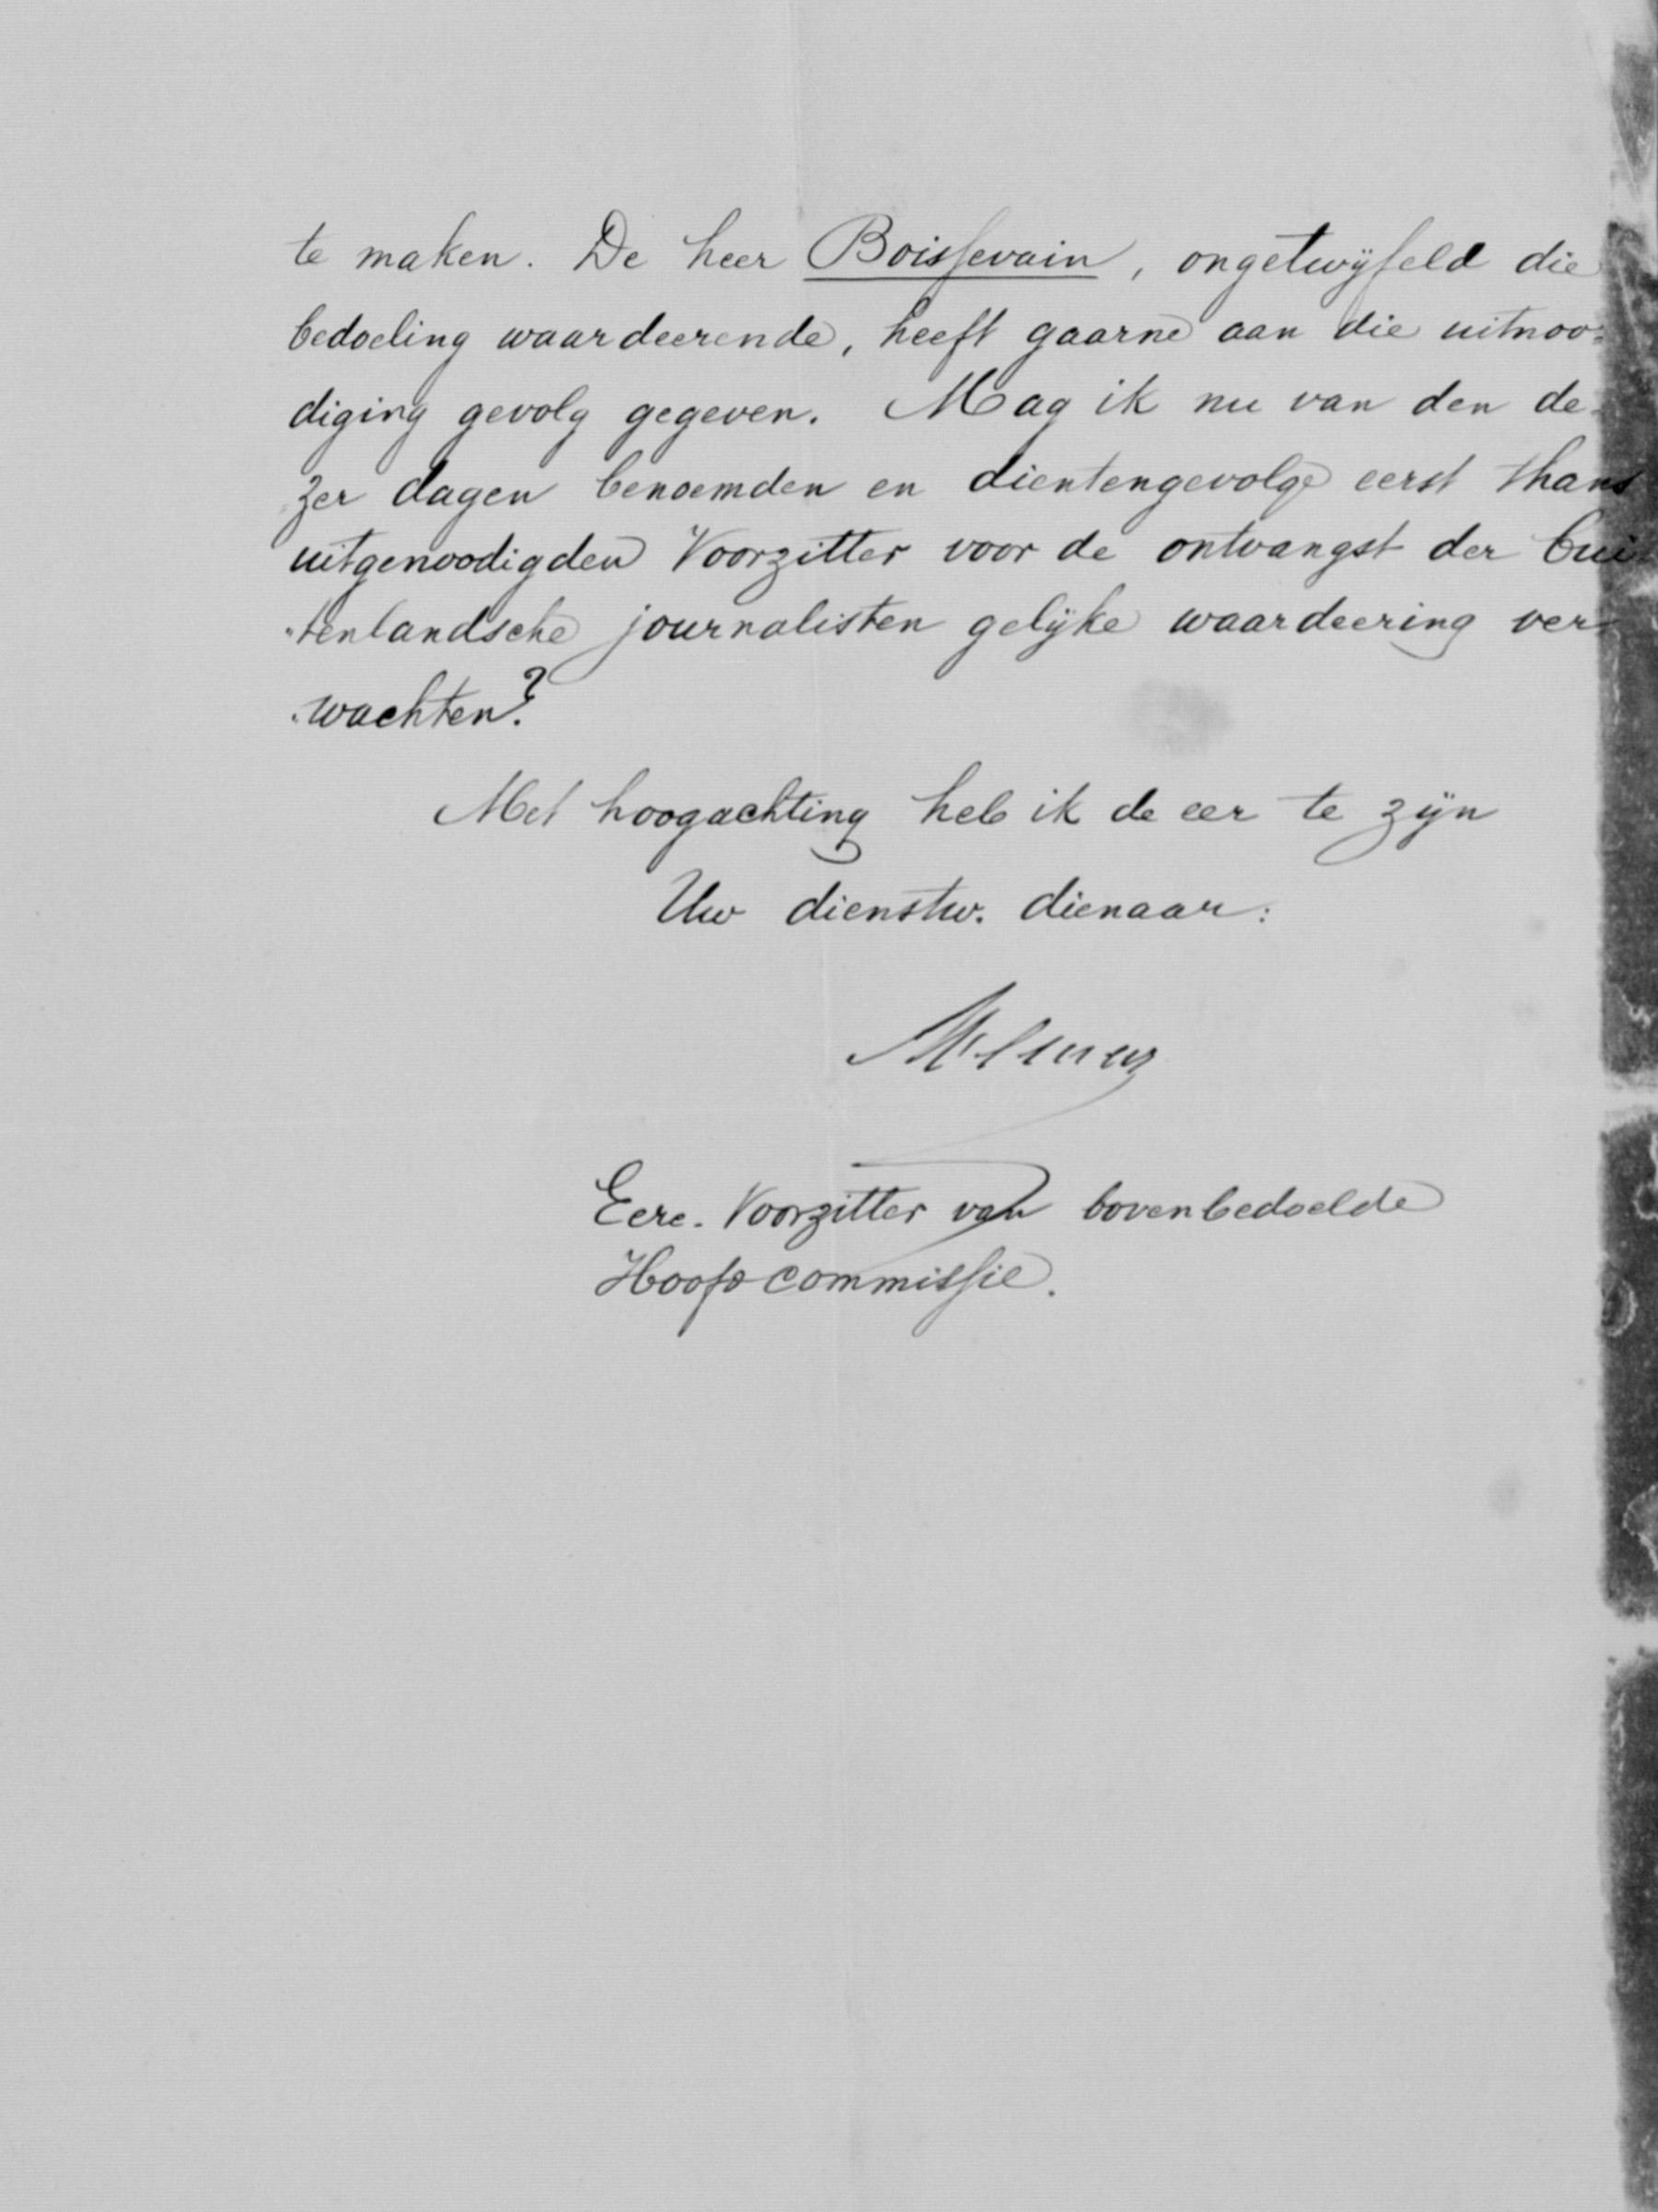 te maken. De heer Boissevain, ongetwijfeld die
bedoeling waardeerende, heeft gaarne aan die uitnoo-
diging gevolg gegeven. Mag ik nu van den de-
zer dagen benoemden en dientengevolge eerst thans
uitgenoodigden Voorzitter voor de ontvangst der bui-
"tenlandsche journalisten gelijke waardeering ver-
"wachten?
Met hoogachting heb ik de eer te zijn
Uw dienstw. dienaar:
Eere-Voorzitter van bovenbedoelde
Hoofdcommissie.